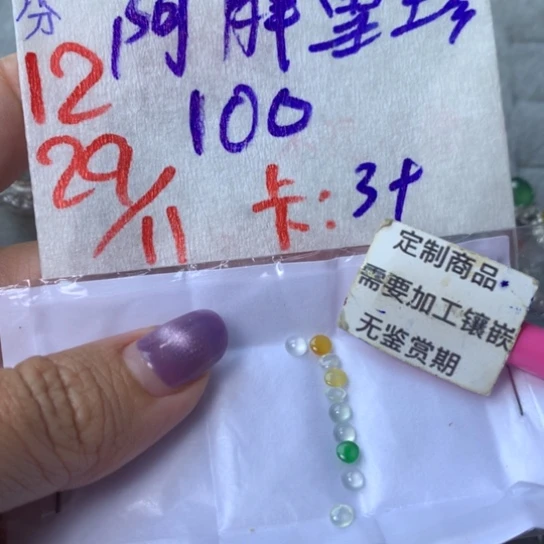 分
阿胖
12
100
29/11
卡:3十
定制商品
需要加工镶嵌
无鉴赏期